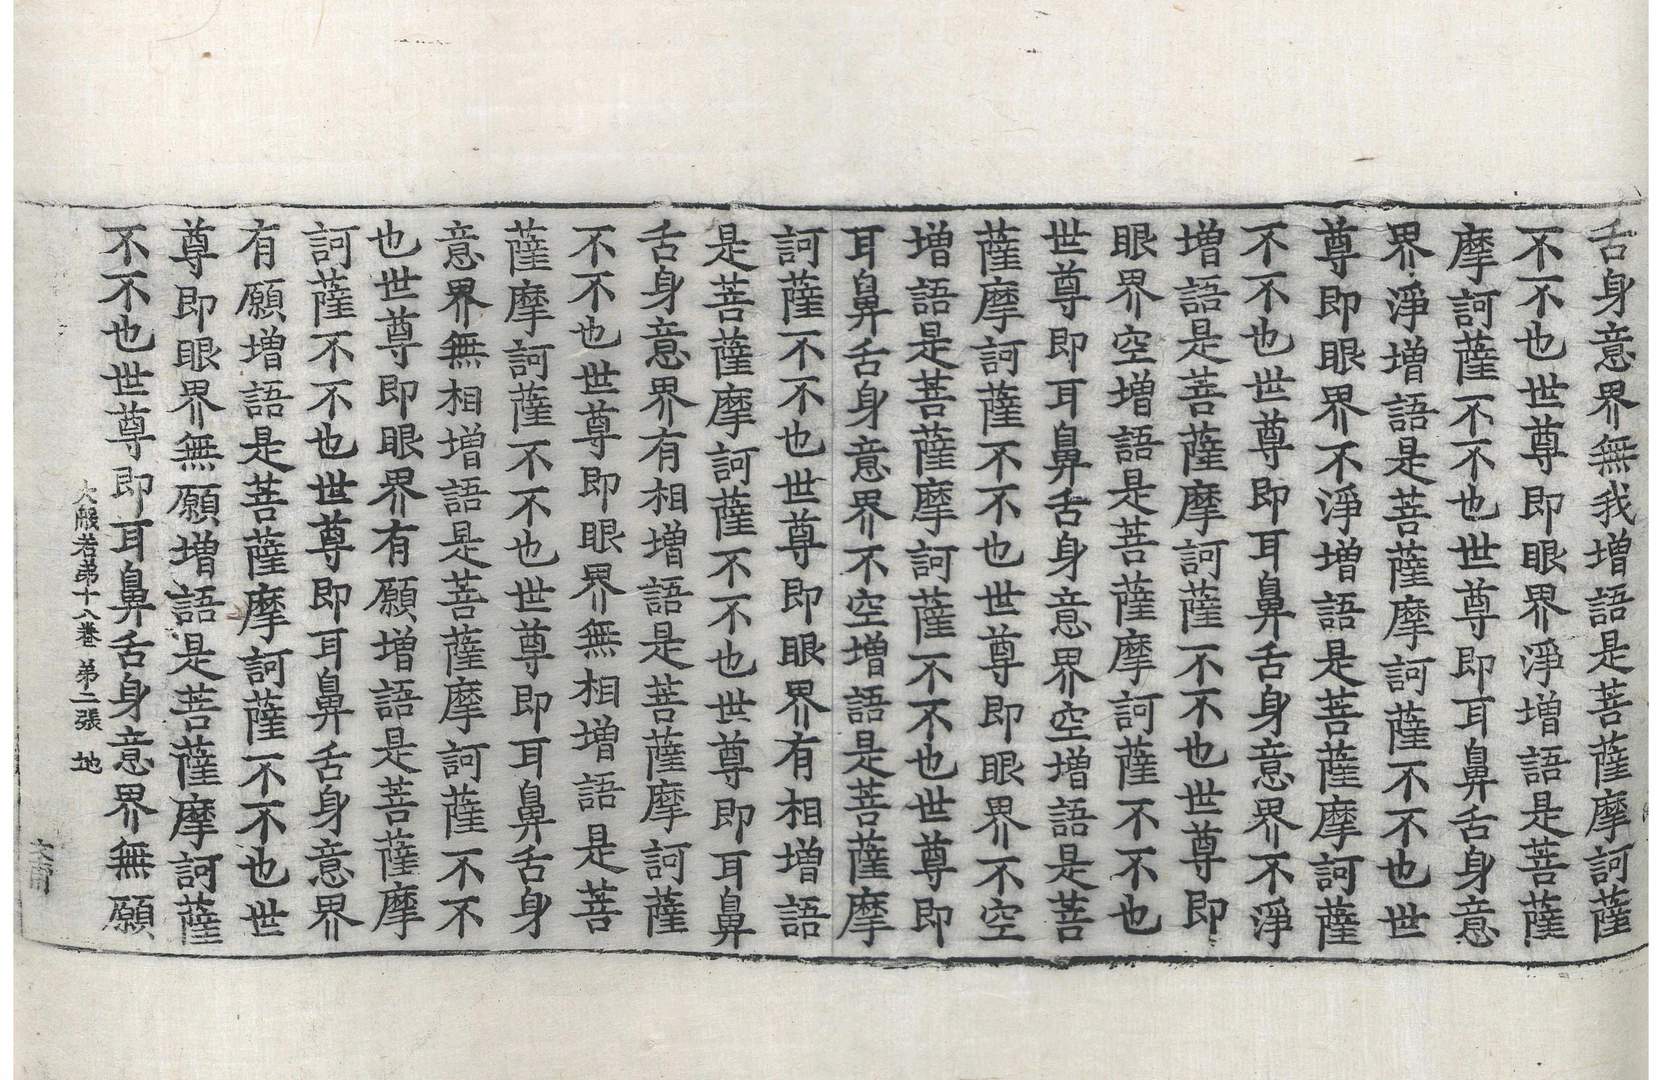 舌身意界無我增語是菩薩摩訶薩
不不也世尊即眼界淨增語是菩薩
摩訶薩不不也世尊即耳鼻舌身意
界淨增語是菩薩摩訶薩不不也世
尊即眼界不淨增語是菩薩摩訶薩
不不也世尊即耳鼻舌身意界不淨
增語是菩薩摩訶薩不不也世尊即
眼界空增語是菩薩摩訶薩不不也
世尊即耳鼻舌身意界空增語是菩
薩摩訶薩不不也世尊即眼界不空
增語是菩薩摩訶薩不不也世尊即
耳鼻舌身意界不空增語是菩薩摩
訶薩不不也世尊即眼界有相增語
是菩薩摩訶薩不不也世尊即耳鼻
舌身意界有相增語是菩薩摩訶薩
不不也世尊即眼界無相增語是菩
薩摩訶薩不不也世尊即耳鼻舌身
意界無相增語是菩薩摩訶薩不不
也世尊即眼界有願增語是菩薩摩
訶薩不不也世尊即耳鼻舌身意界
有願增語是菩薩摩訶薩不不也世
尊即眼界無願增語是菩薩摩訶薩
不不也世尊即耳鼻舌身意界無願
大般若第十八卷 第二張 地